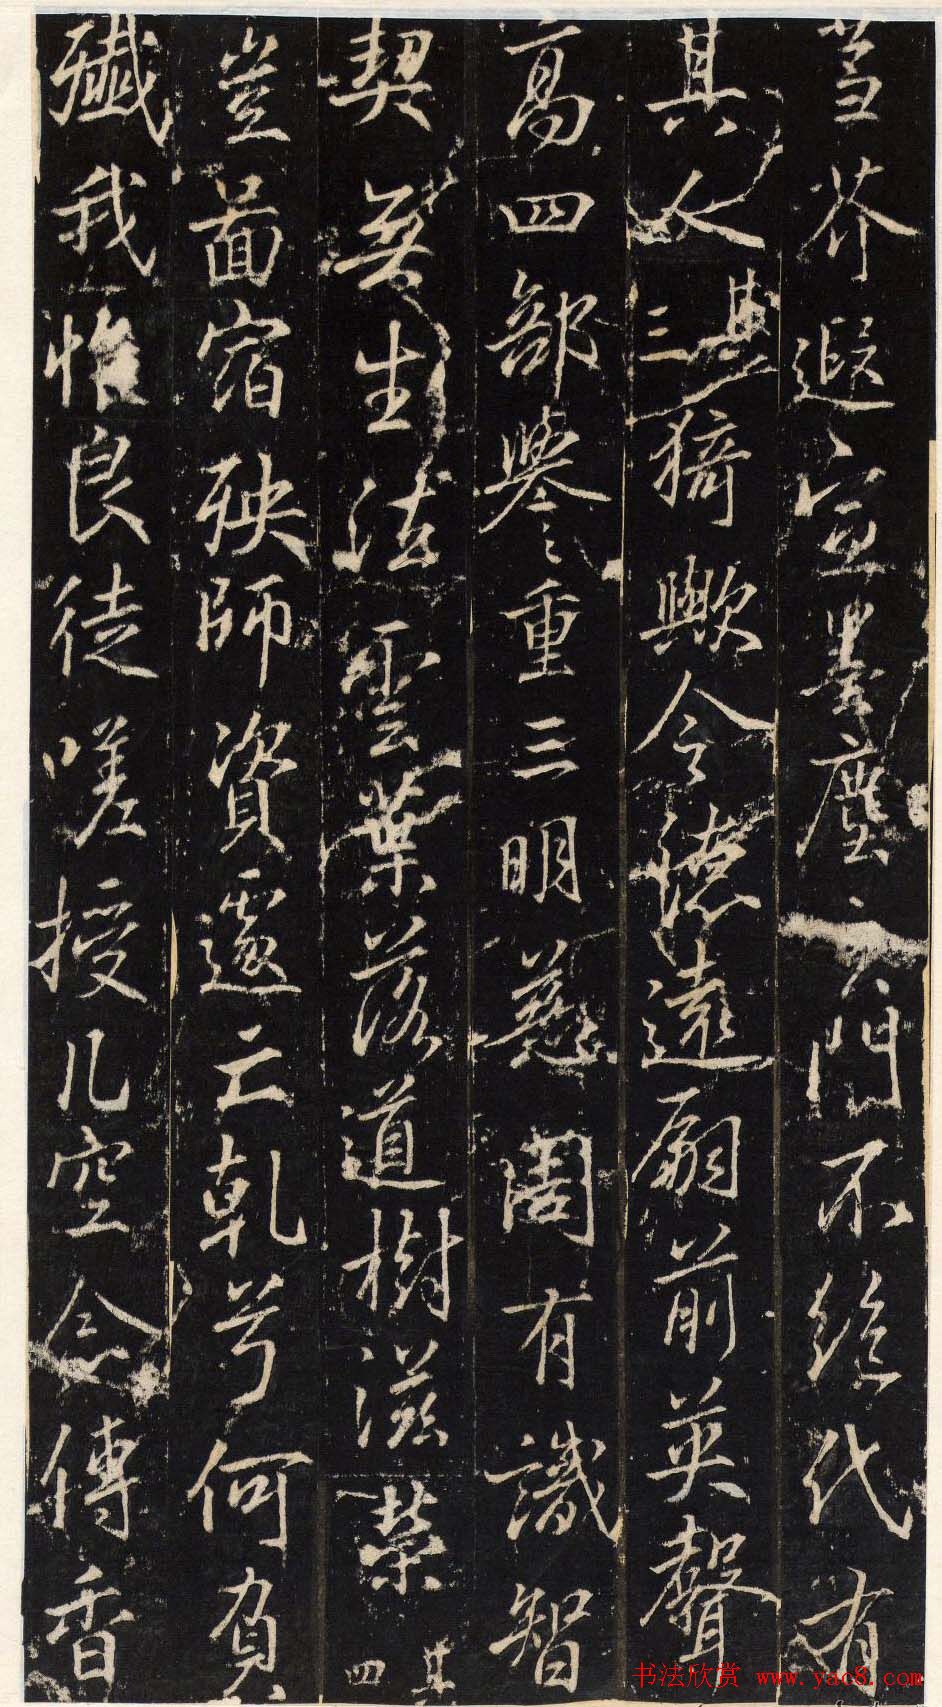 芥遐宣墨塵門不絕代有
其人其三猗歟令德遠扇前英聲
高四部譽重三明慈周有識智
契無生法雲葉落道樹滋榮其四
豈啚宿殃師資遽亡乾兮何負
殲我惟良徒嗟授几空念傳香
书法欣赏 www.yac8.com